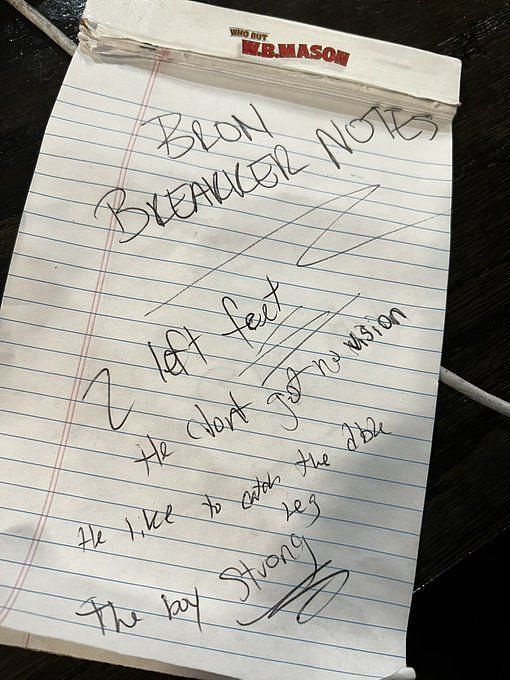 WHO BUT
W.B.MASON
BRON
BREAKKER NOTES
2 left feet
He dont got no vision
He like to catch the dble
leg
The boy strong